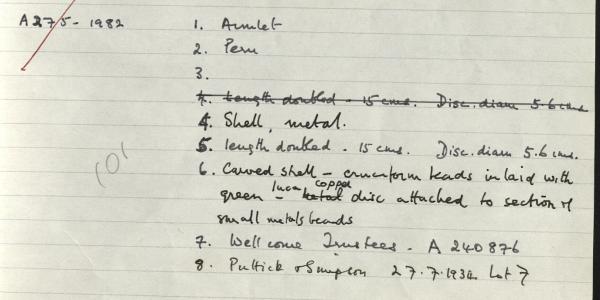 A275-1982
1. Amulet
2. Peru
3.
4. Length doubled - 15 cms. Disc. diam 5.6 cms
4. Shell, metal.
5. length doubled - 15 cms. Disc. diam 5.6 cms.
6. Carved shell - cruciform beads inlaid with
green - Inca copper metal disc attached to section of
small metal beads
7. Wellcome Trustees - A 240876
8. Puttick & Simpson 27.7.1934 Lot 7
101